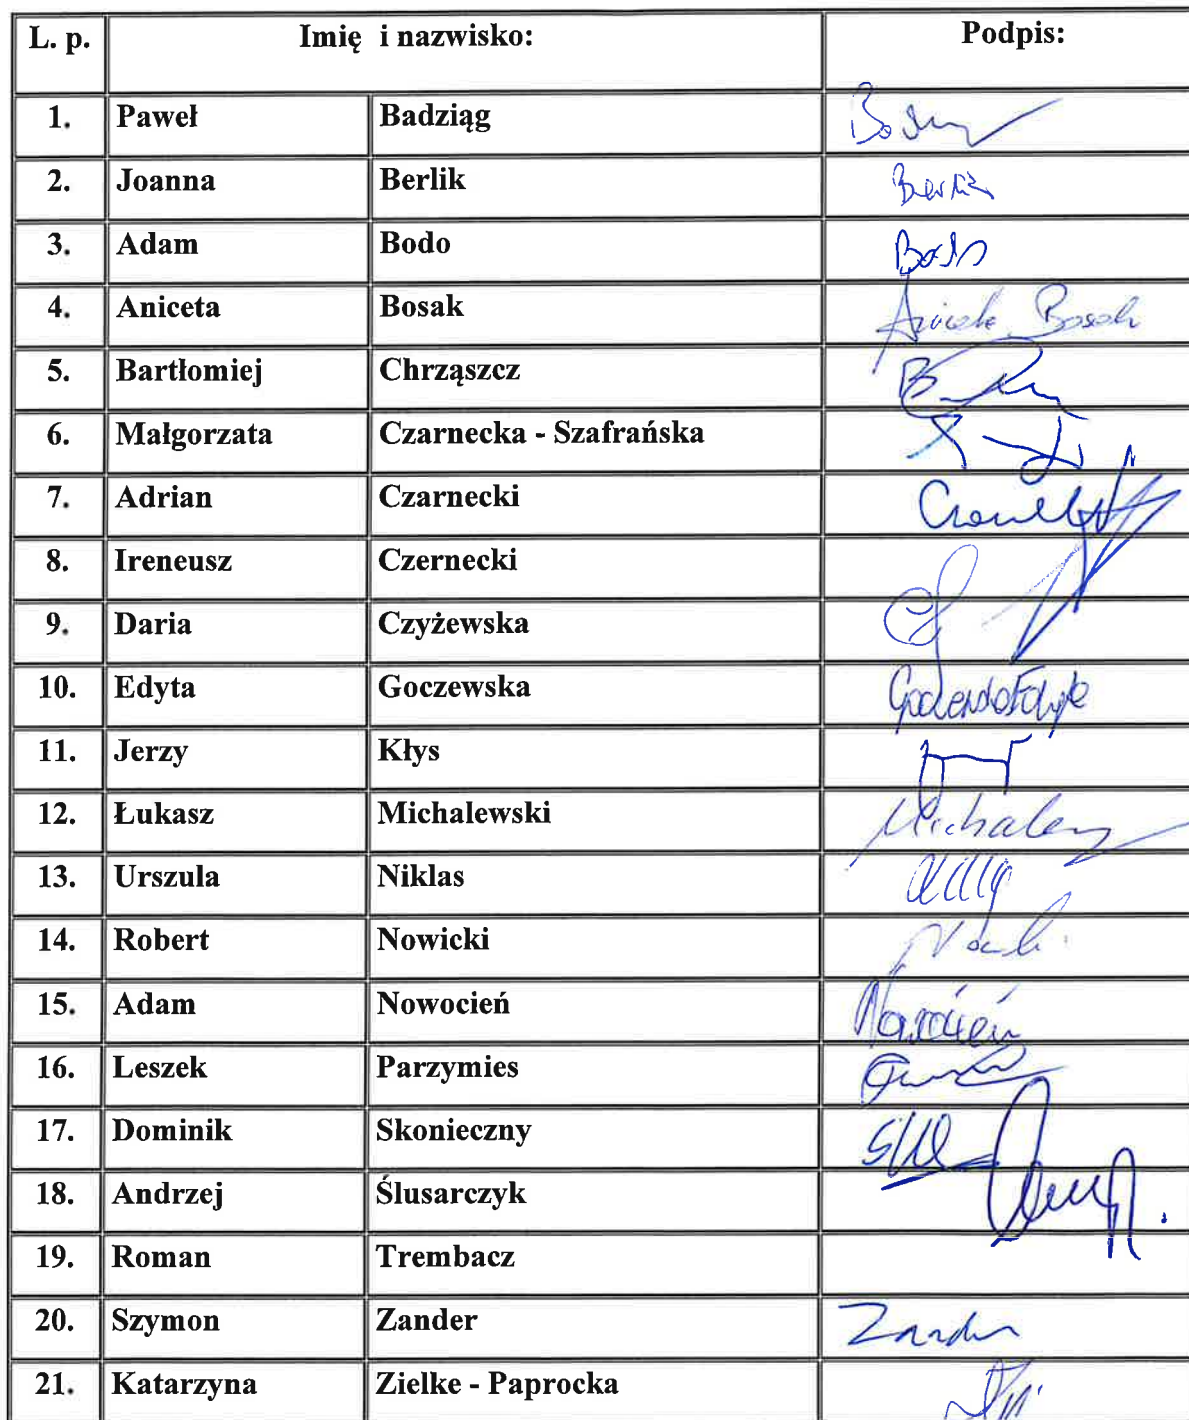 L. p. Imię i nazwisko: Podpis:
1. Paweł Badziąg
2. Joanna Berlik Berlik
3. Adam Bodo Bodo
4. Aniceta Bosak Aniceta Bosak
5. Bartłomiej Chrząszcz
6. Małgorzata Czarnecka - Szafrańska
7. Adrian Czarnecki
8. Ireneusz Czernecki
9. Daria Czyżewska
10. Edyta Goczewska
11. Jerzy Kłys
12. Łukasz Michalewski
13. Urszula Niklas
14. Robert Nowicki
15. Adam Nowocień Nowocień
16. Leszek Parzymies
17. Dominik Skonieczny
18. Andrzej Ślusarczyk
19. Roman Trembacz
20. Szymon Zander Zander
21. Katarzyna Zielke - Paprocka